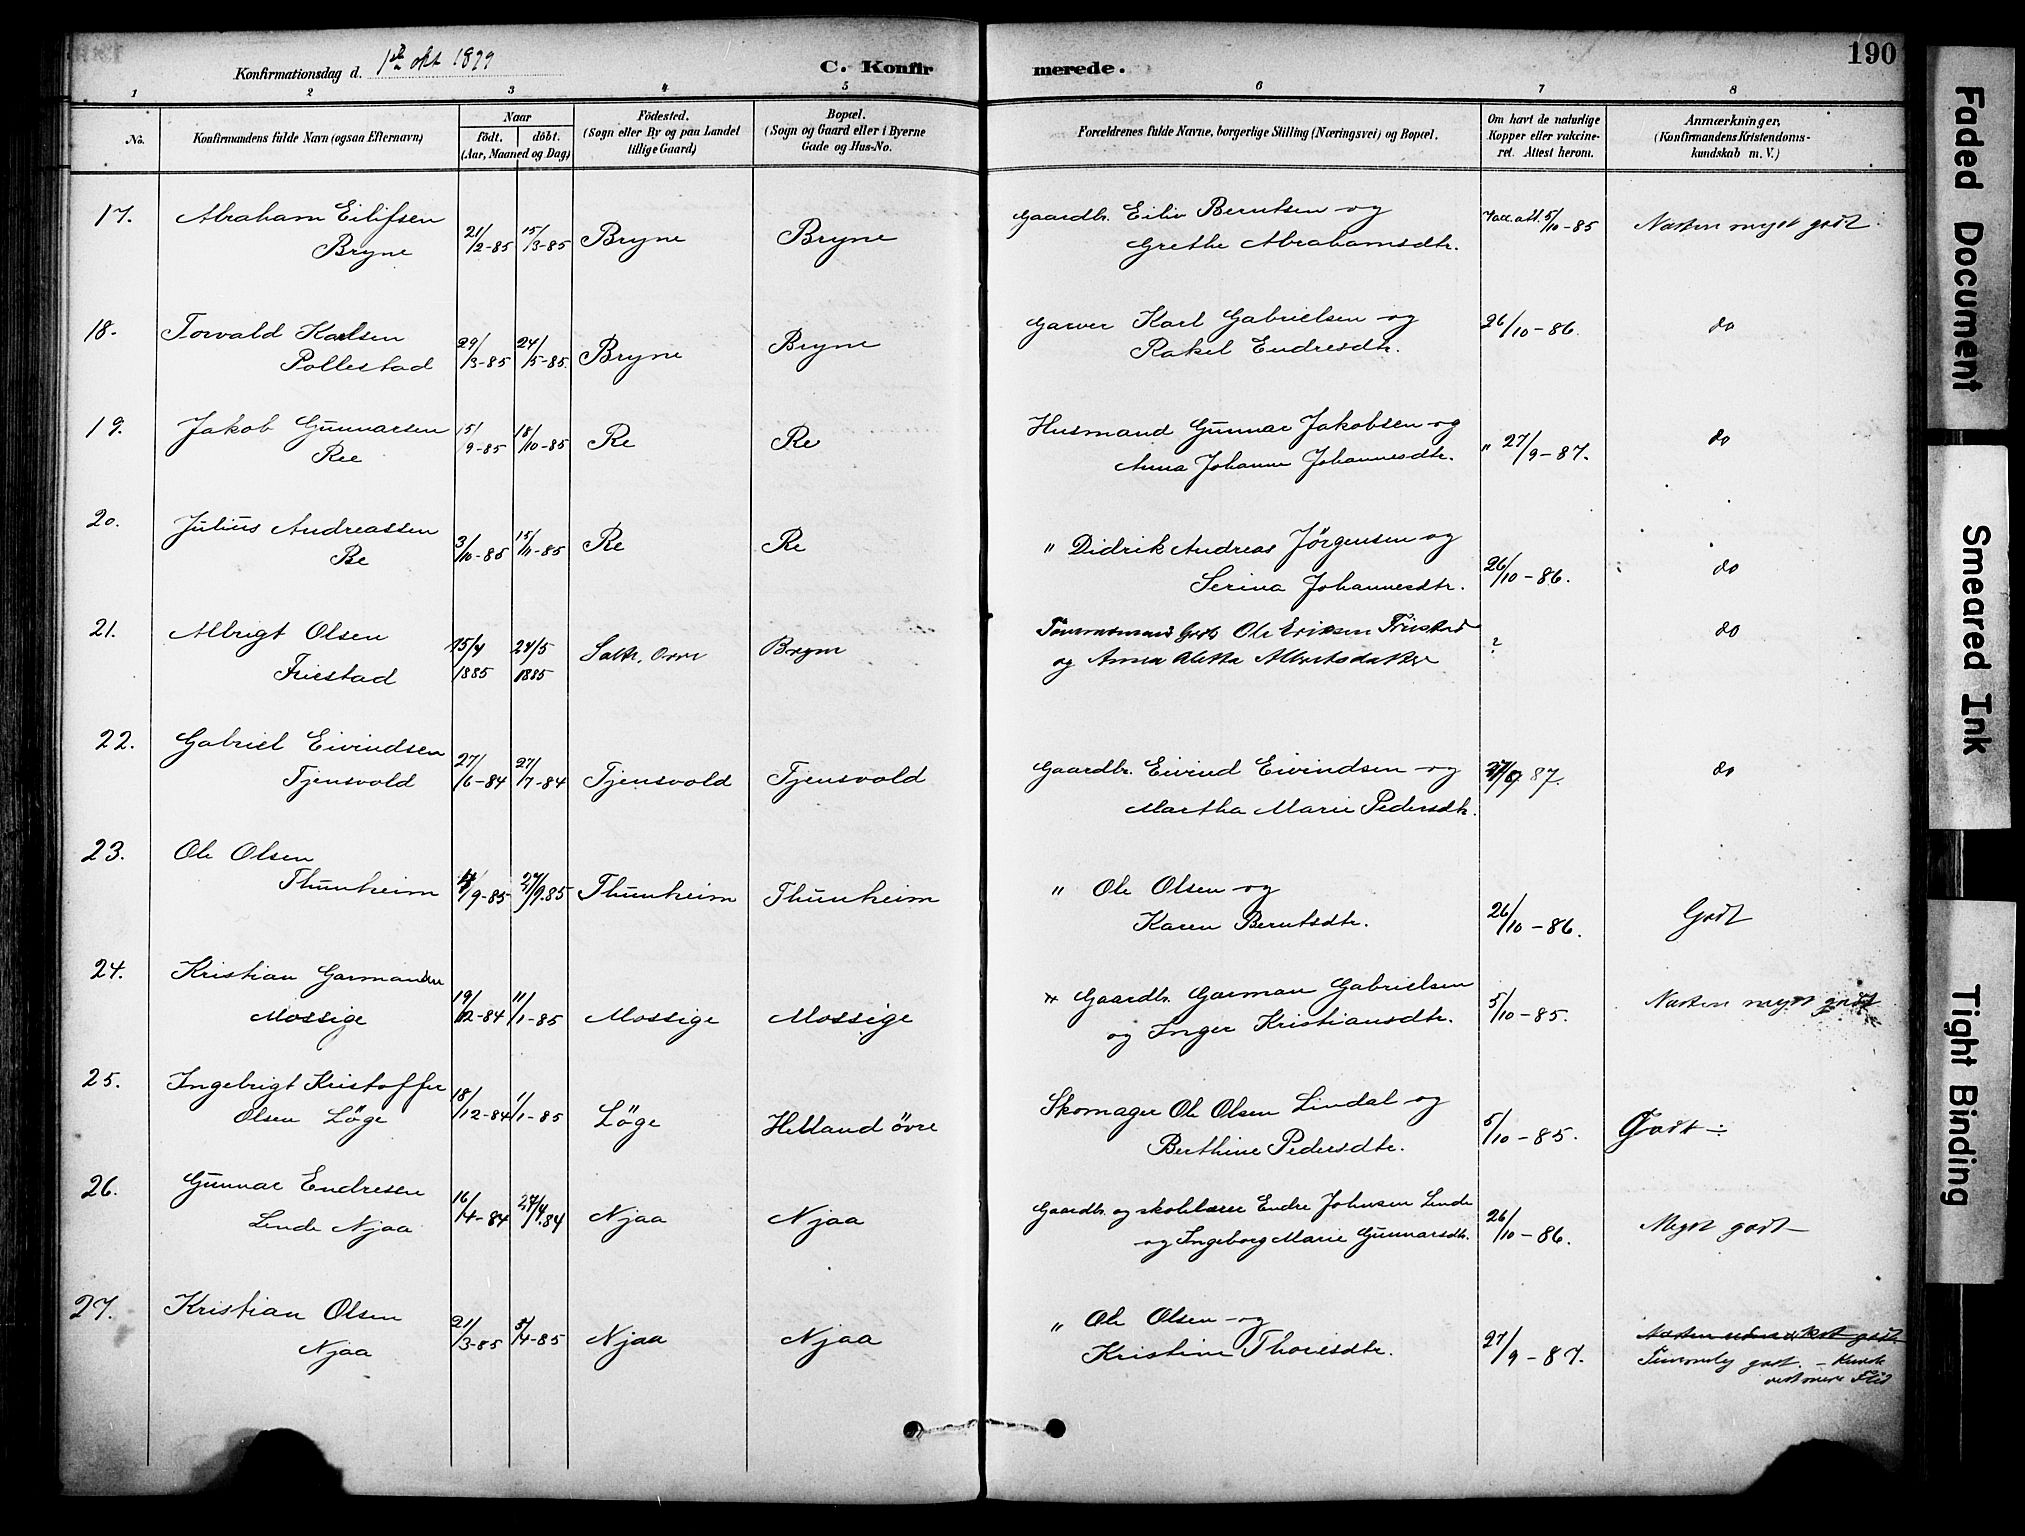 Konfirmationsdag d. 1ste okt 1899
C. Konfirmerede.
190
1 2 3 4 5 6 7 8
No.
Konfirmandens fulde Navn (ogsaa Efternavn)
Naar
födt. döbt.
(Aar, Maaned og Dag)
Födested.
(Sogn eller By og paa Landet
tillige Gaard)
Bopæl.
(Sogn og Gaard eller i Byerne
Gade og Hus-No.
Forældrenes fulde Navne, borgerlige Stilling (Næringsvei) og Bopæl.
Om havt de naturlige
Kopper eller vakcine-
ret. Attest herom.
Anmærkninger,
(Konfirmandens Kristendoms-
kundskab m. V.)
17. Abraham Eilifsen
Bryne
21/2-85 15/3-85 Bryne Bryne
Gaardbr. Eiliv Berntsen og
Grethe Abrahamsdtr.
Vac.att. 5/10-85 Næsten meget godt
18. Torvald Karlsen
Pollestad
29/3-85 24/5-85 Bryne Bryne
Garver Karl Gabrielsen og
Rakel Endresdtr.
26/10-86. do
19. Jakob Gunnarsen
Ree
15/9-85 18/10-85 Re Re
Husmand Gunnar Jakobsen og
Anna Johanne Johannesdtr.
" 27/9-87. do
20. Julius Andreassen
Re
3/10-85 15/11-85 Re Re
" Didrik Andreas Jörgensen og
Serina Johannesdtr.
26/10-86. do
21. Albrigt Olsen
Friestad
15/4 1885 24/5 1885 Orre Bryne
Ole Eriksen Friestad
og Anna Aletta Albertsdatter
? do
22. Gabriel Eivindsen
Tjensvold
27/6-84 27/7-84 Tjensvold Tjensvold
Gaardbr. Eivind Eivindsen og
Martha Marie Pedersdtr.
87. do
23. Ole Olsen
Thunheim
4/9-85 27/9.85 Thunheim Thunheim
" Ole Olsen og
Karen Berntsdtr.
26/10-86. Godt
24. Kristian Garmandsen
Mossige
19/12-84 11/1-85 Mossige Mossige
" Gaardbr. Garman Gabrielsen
og Inger Kristiansdtr.
5/10-85. Næsten meget godt
25. Ingebrigt Kristoffer
Olsen Löge
18/12-84 1/1-85 Löge Helland övre
Skomager Ole Olsen Lindal og
Berthine Pedersdtr.
5/10-85. Godt ÷
26. Gunnar Endresen
Lende Njaa
16/4-84 27/4.84 Njaa Njaa
Gaardbr. og skolelærer Endre Johnsen Lende
og Ingeborg Marie Gunnarsdtr.
26/10-86. Meget godt
27. Kristian Olsen
Njaa
21/3-85 5/4-85 Njaa Njaa
" Ole Olsen og
Kristine Thoresdtr.
27/9-87. Næsten udmærket godt
Temmelig godt. – Kunde
vist mere Flid
Faded Document
Smeared Ink
Tight Binding